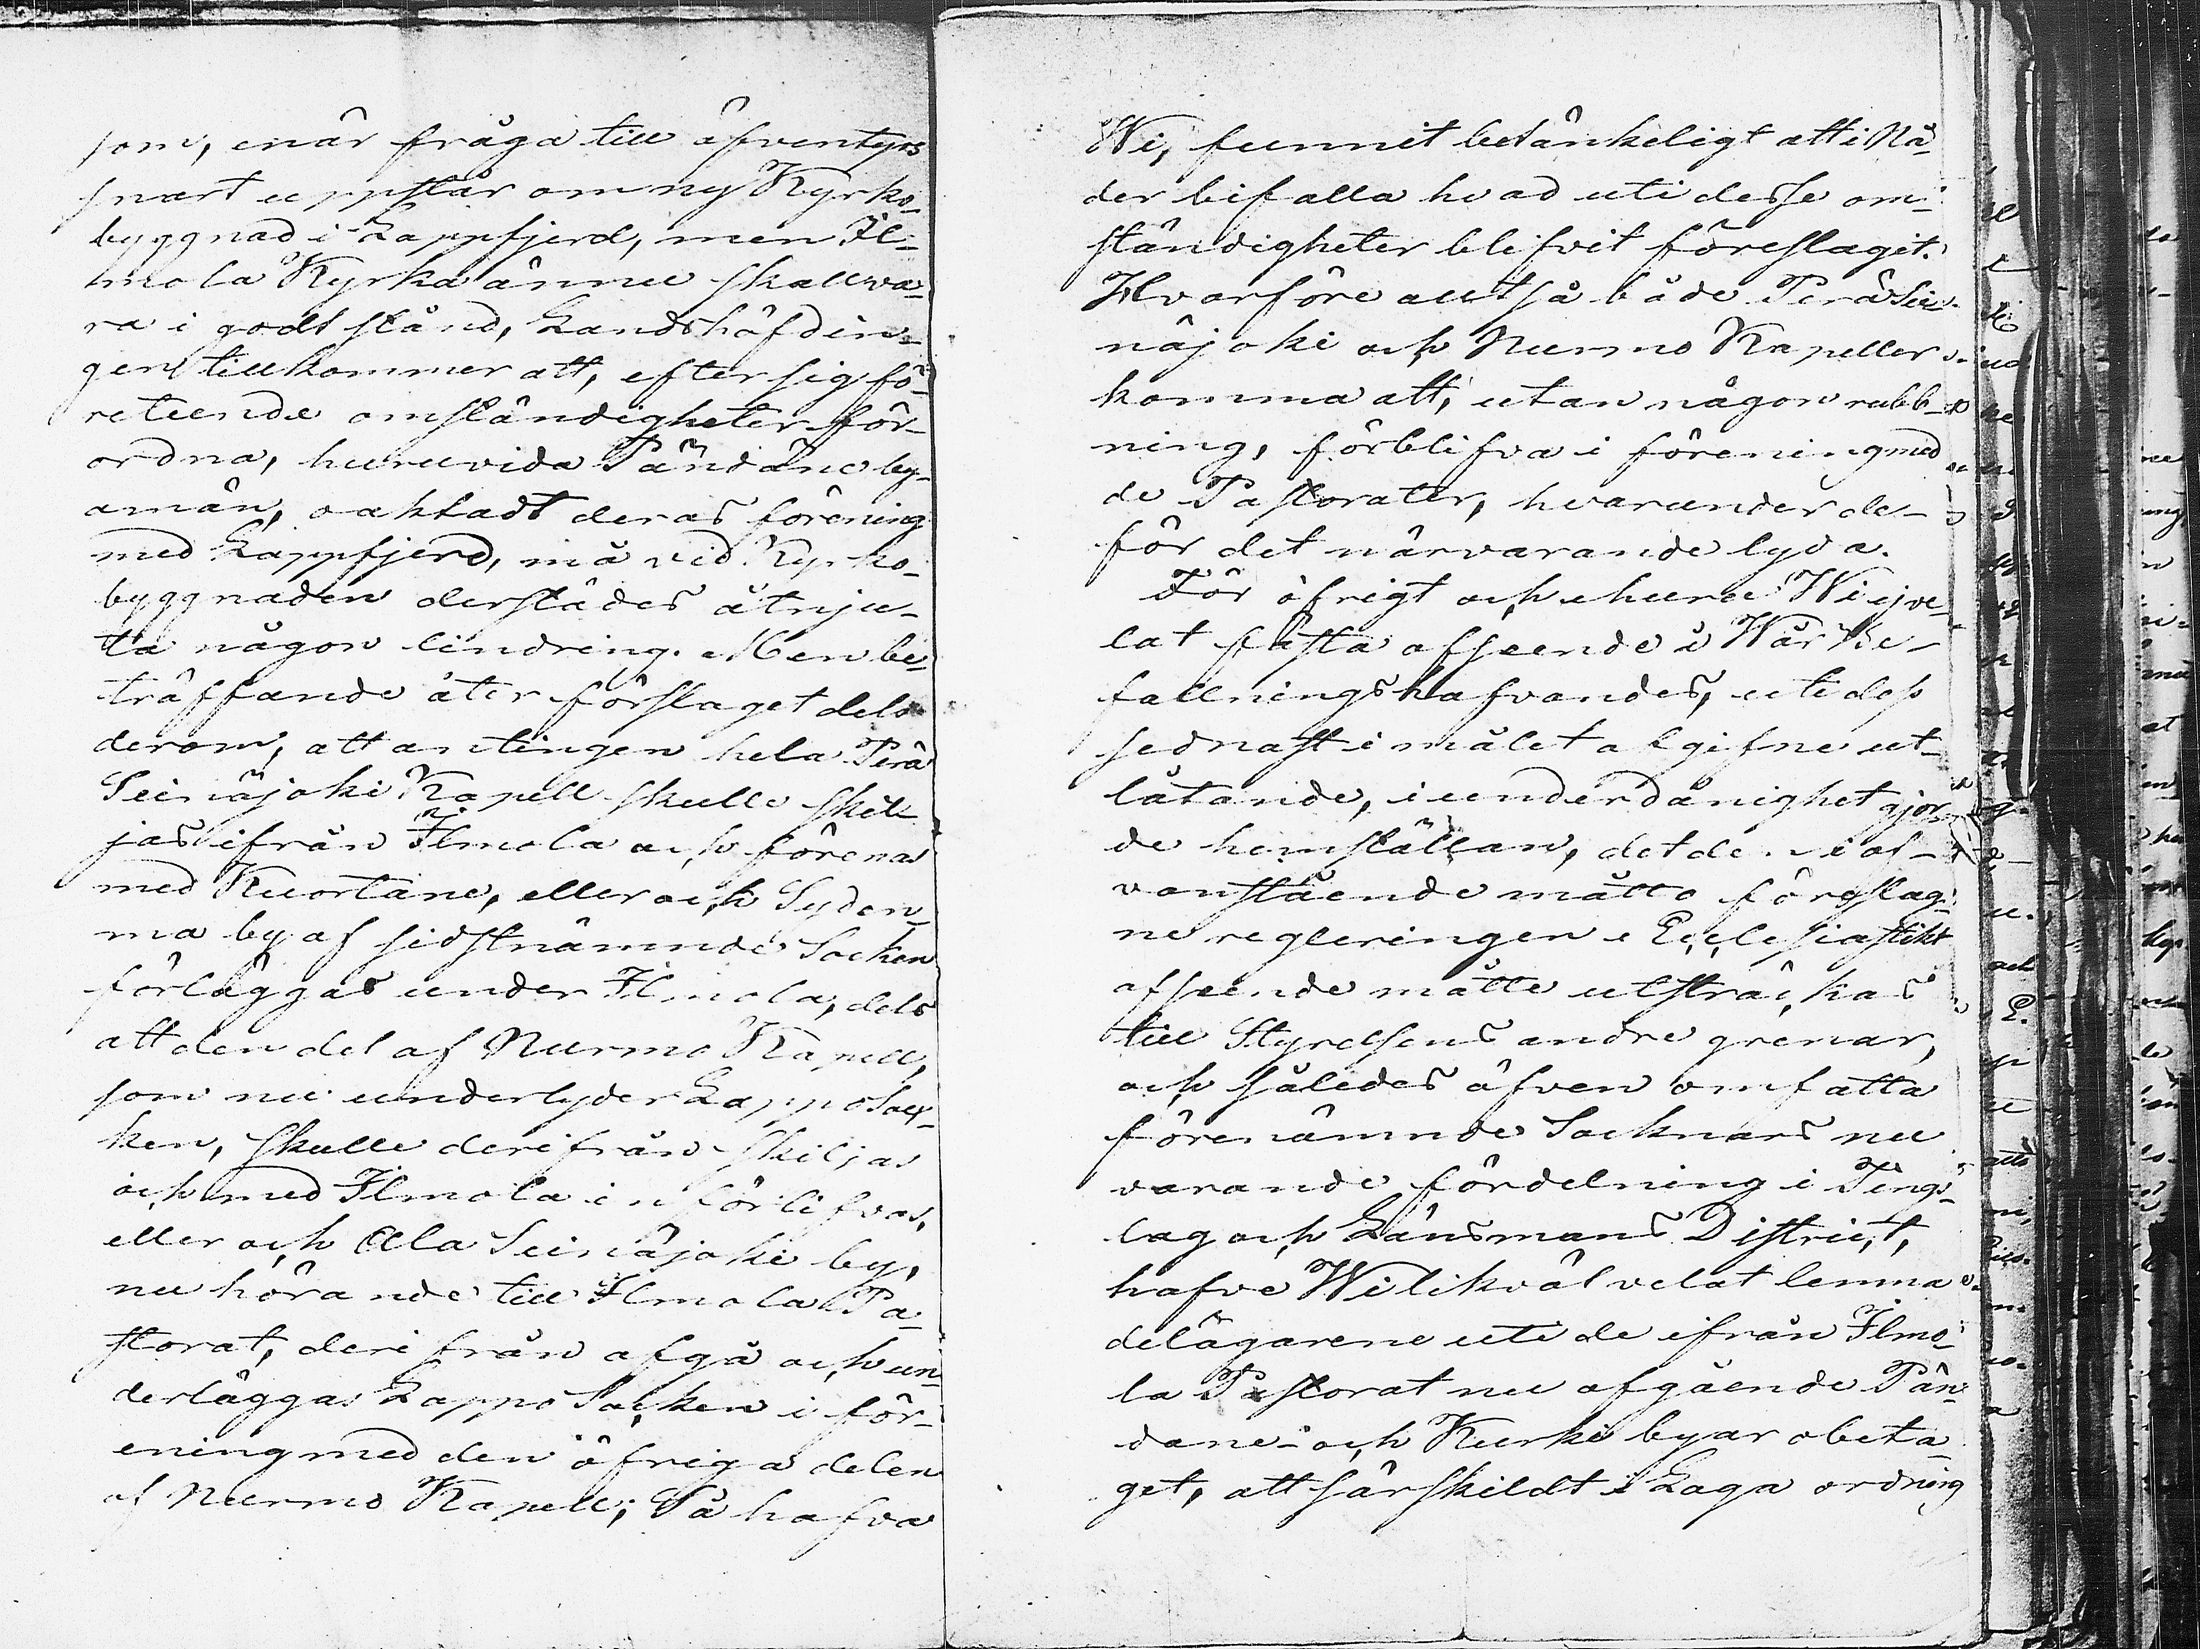 som, enär fråga till äfventyrs
snart uppstår om ny Kyrko-
byggnad i Lappfjerd, men Il-
mola Kyrka ännu skall va-
ra i godt stånd, Landshöfdin-
gen tillkommer att, efter sig fö-
reteende omständigheter för-
ordna, huruvida Pändäne by-
amän, oaktadt deras förening
med Lappfjerd, må vid Kyrko-
byggnaden derstädes åtnju-
ta någon lindring. Men be-
träffande åter förslaget dels
derom, att antingen hela Perä
Seinäjoki Kapell skulle skil-
jas ifrån Ilmola och förenas
med Kuortane, eller och Syden-
ma by af sidstnämnde Socken
förläggas under Ilmola, dels
att den del af Nurmo Kapell,
som nu underlyder Lappo Soc-
ken, skulle derifrån skiljas
och med Ilmola införlifvas,
eller och Ala Seinäjoki by,
nu hörande till Ilmola Pa-
storat, derifrån afgå och un-
derläggas Lappo Socken i för-
ening med den öfriga delen
af Nurmo Kapell; Så hafva
Wi, funnit betänkeligt att i Nå-
der bifalla hvad uti desse om-
ständigheter blifvit föreslaget.
Hvarföre alltså både Perä Sei-
näjoki och Nurmo Kapeller
komma att, utan någon rubb-
ning, förblifva i förening med
de Pastorater, hvarunder de
för det närvarande lyda.
För öfrigt och ehuru Wi ej ve-
lat fästa afseende å Wår Be-
fallningshafvandes, uti dess
sednast i målet afgifne ut-
låtande, i underdånighet gjor-
de hemställan, det den i of-
vanstående måtto föreslag-
ne regleringen i Ecclesiastikt
afseende måtte utsträckas
till Styrelsens andre grenar,
och således äfven omfatta
förenämnde Socknars nu
varande fördelning i Tings-
lag och Länsmans District,
hafve Wi likväl velat lemna
delägarene uti de ifrån Ilmo-
la Pastorat nu afgående Pän-
däne- och Kurki byar obeta-
get, att särskildt i Laga ordning